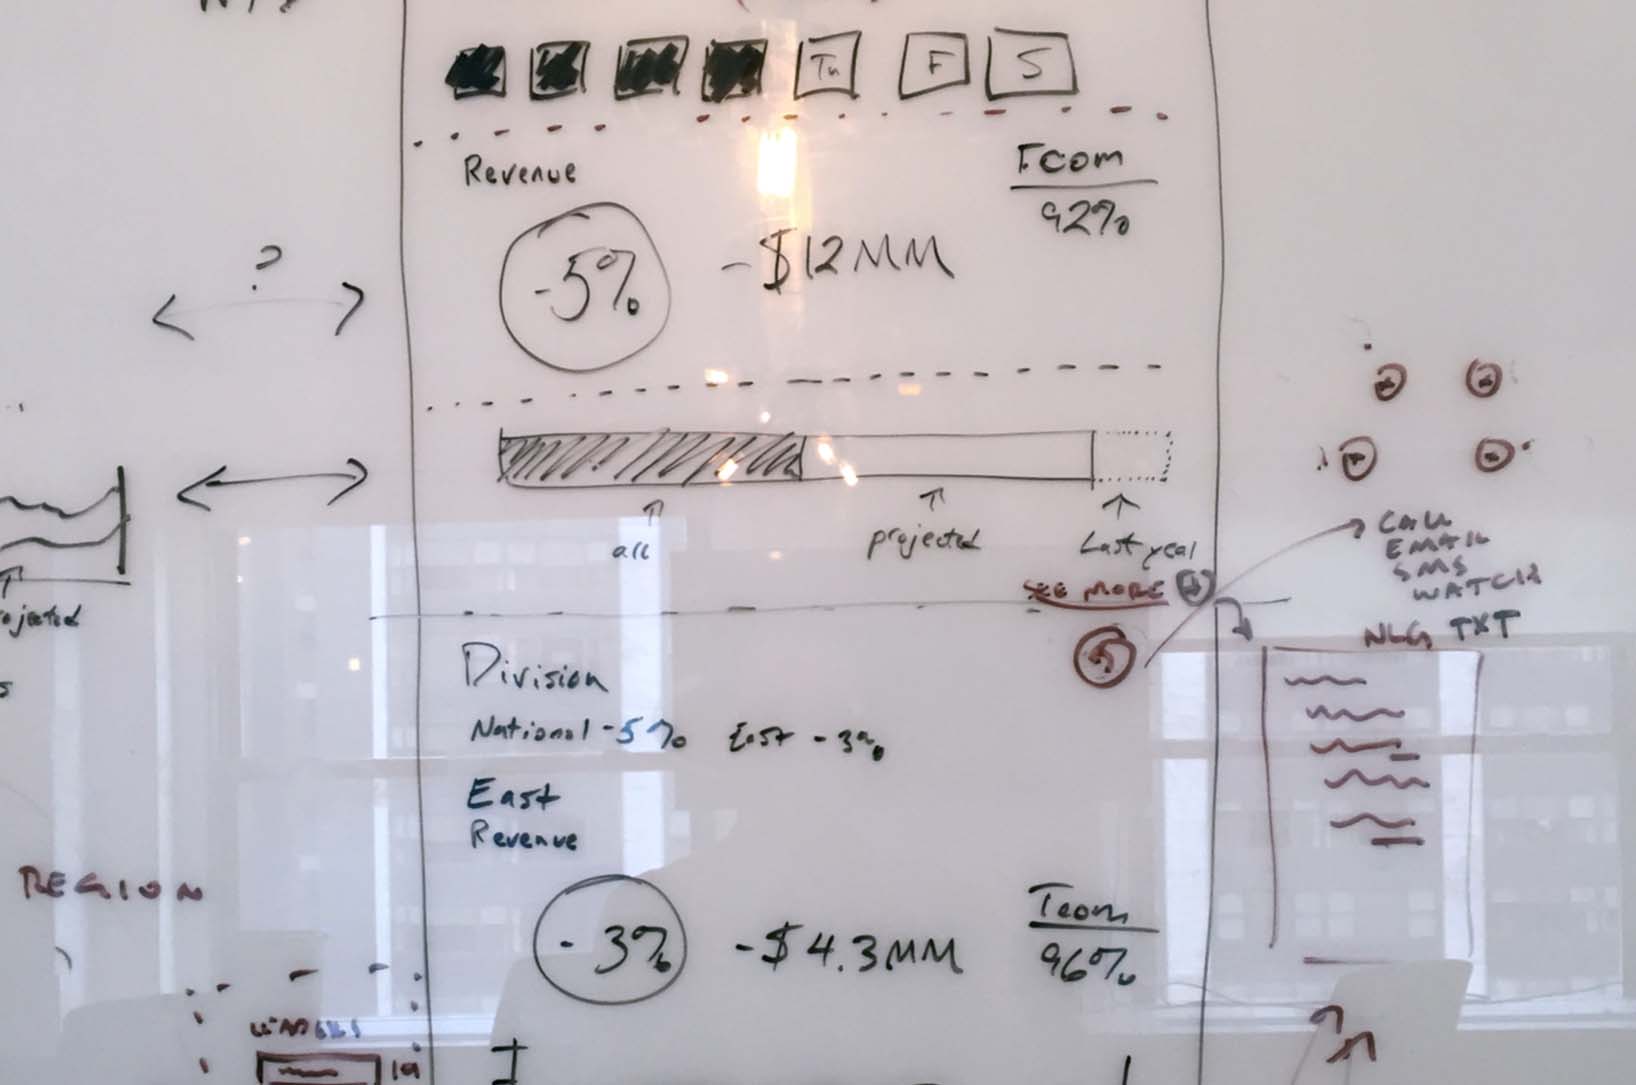 Tu F S
Revenue
Fcom
92%
-5%
-$12MM
?
all
projected
Last year
SEE MORE
CALL
EMAIL
SMS
WATCH
NLG TXT
Division
National -5% East -3%
East
Revenue
REGION
-3%
-$4.3MM
Tcom
96%
ojected
s